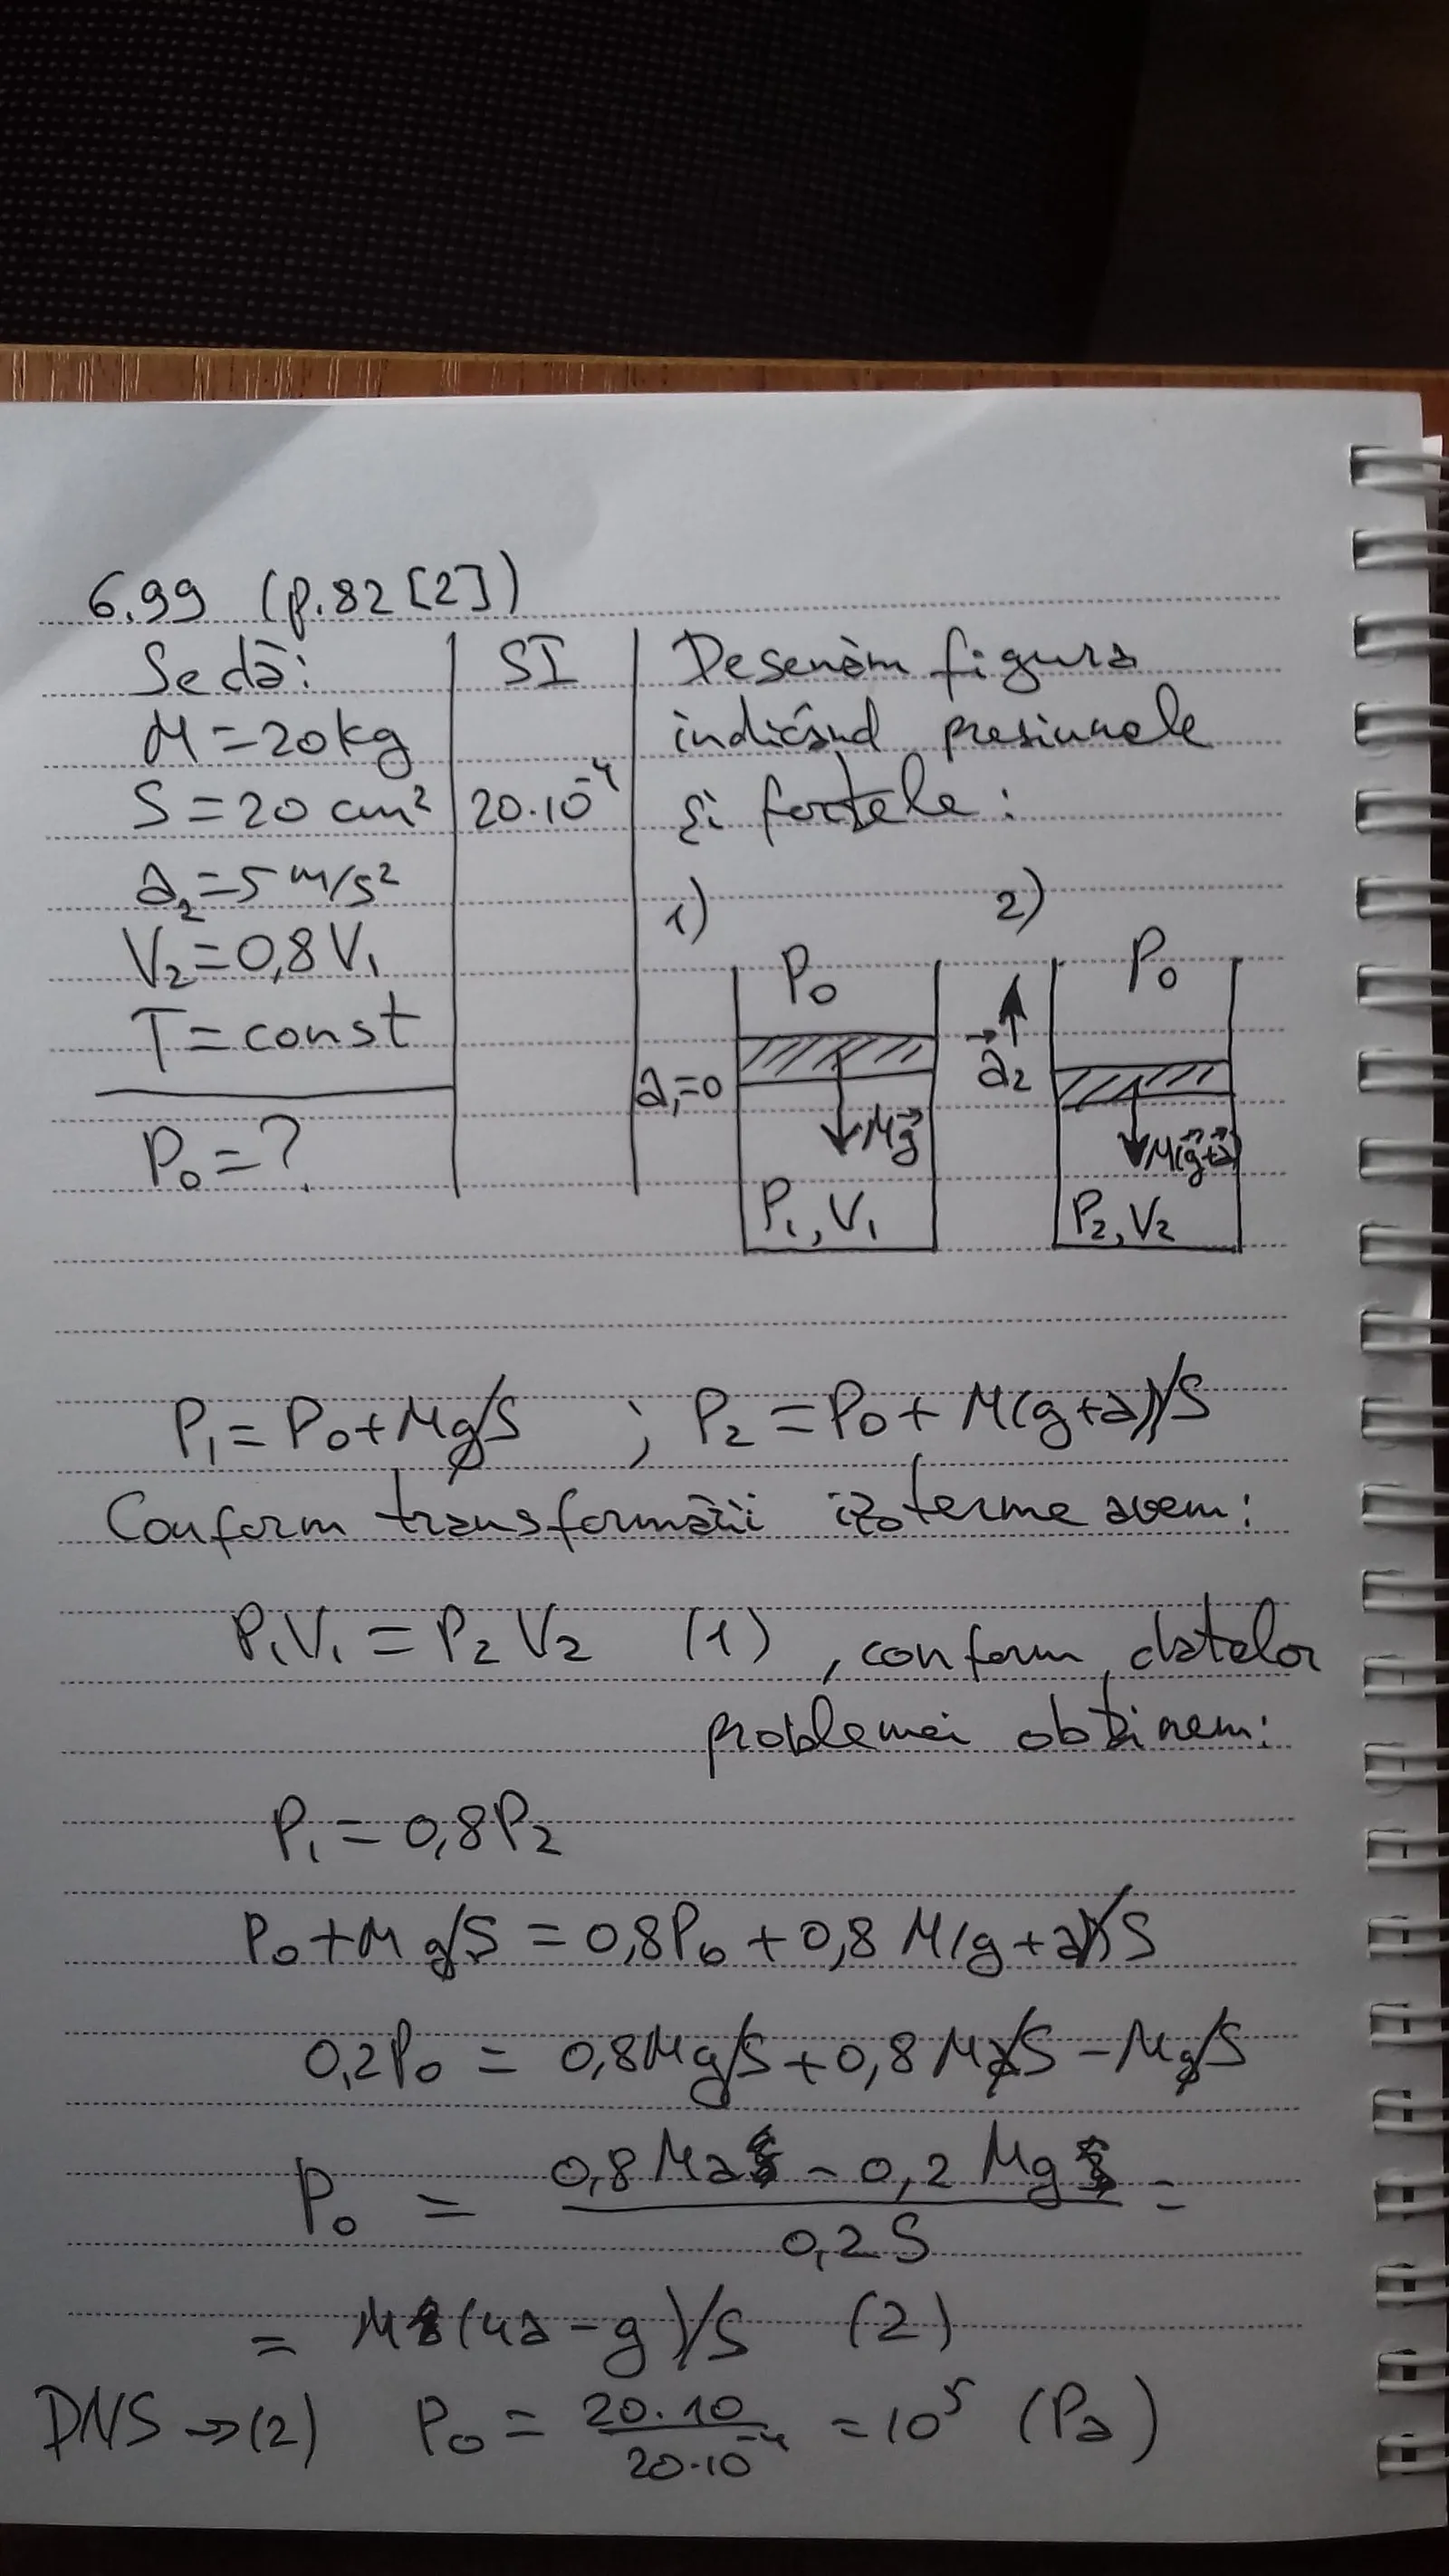 6.99 (p.82[2])
Se dă:
M=20kg
S=20 cm²
a₂=5 m/s²
V₂=0,8V₁
T=const
P₀=?
SI
20.10⁻⁴
Desenăm figura
indicând presiunele
și forțele:
1)
P₀
a₁=0
Mg⃗
P₁, V₁
2)
P₀
a⃗₂
M(g⃗+a⃗)
P₂, V₂
P₁=P₀+Mg/S ; P₂=P₀+M(g+a)/S
Conform transformării izoterme avem:
P₁V₁=P₂V₂ (1) , conform datelor
problemei obținem:
P₁=0,8P₂
P₀+Mg/S=0,8P₀+0,8M(g+a)/S
0,2P₀=0,8Mg/S+0,8Ma/S-Mg/S
P₀ = (0,8Ma-0,2Mg)/(0,2S) =
= M(4a-g)/S (2)
DNS→(2) P₀ = (20.10)/(20.10⁻⁴) = 10⁵ (Pa)